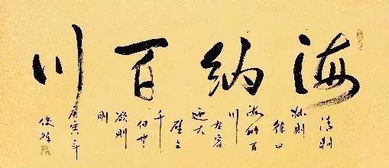 海纳百川
清朝
林则
徐曰
海纳百
川
有容
迺大
壁立
千
仞无
欲则
刚
庚寅年